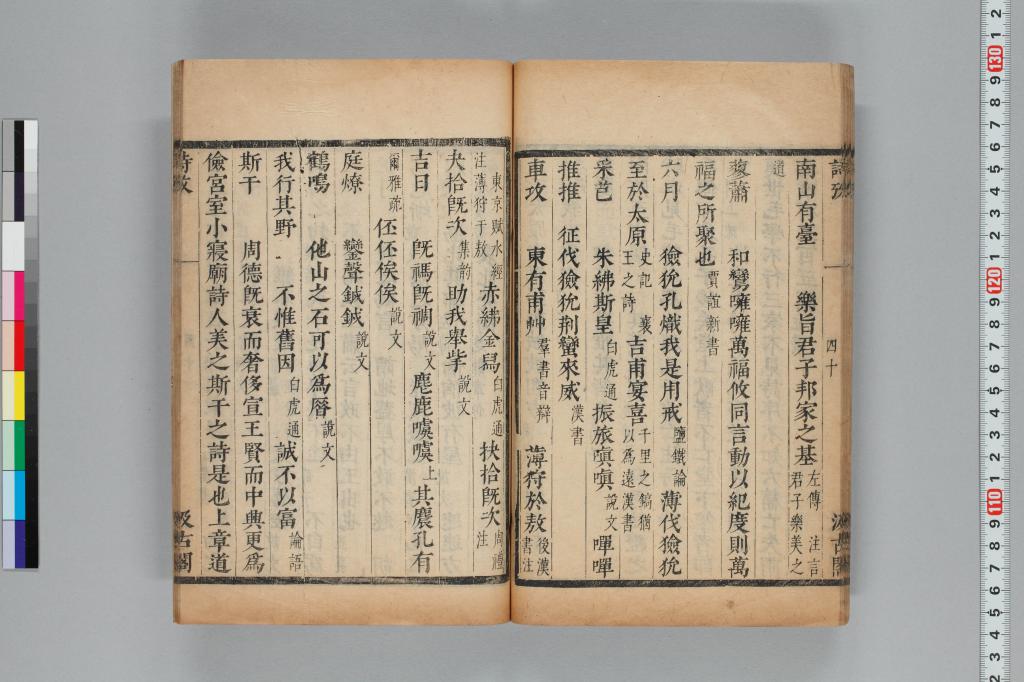 南山有臺 樂旨君子邦家之基 左傳注言君子樂美之
道
蓼蕭 和鸞噰噰萬福攸同言動以紀度則萬
福之所聚也 賈誼新書
六月 獫狁孔熾我是用戒 鹽鐵論 薄伐獫狁
至於太原 史記 襄王之詩 吉甫宴喜 千里之鎬猶以為遠漢書
采芑 朱紼斯皇 白虎通 振旅嗔嗔 說文 嘽嘽
推推 征伐獫狁荆蠻來威 漢書
車攻 東有甫艸 羣書音辯 薄狩於敖 後漢書注
東京賦水經注薄狩于敖 赤紼金舄 白虎通 抉拾旣次 周禮注
夬拾旣次 集韵 助我舉㧘 說文
吉日 旣禡旣禂 說文 麀鹿噳噳 上 其麎孔有
爾雅疏 伾伾俟俟 說文
庭燎 鑾聲鉞鉞 說文
鶴鳴 他山之石可以爲厝 說文
我行其野 不惟舊因 白虎通 誠不以富 論語
斯干 周德旣衰而奢侈宣王賢而中興更爲
儉宮室小寢廟詩人美之斯干之詩是也上章道
詩攷
四十
汲古閣